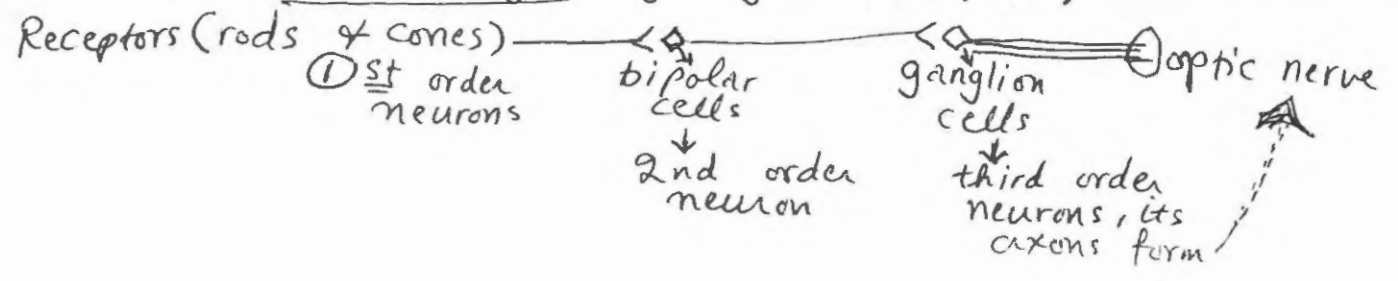 Receptors (rods & cones)
① st order
neurons
bipolar
cells
2nd order
neuron
ganglion
cells
third order
neurons, its
axons form
optic nerve